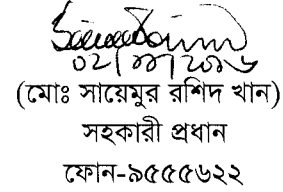 ০২/১১/২০১৬
(মোঃ সায়েমুর রশিদ খান)
সহকারী প্রধান
ফোন-৯৫৫৫৬২২